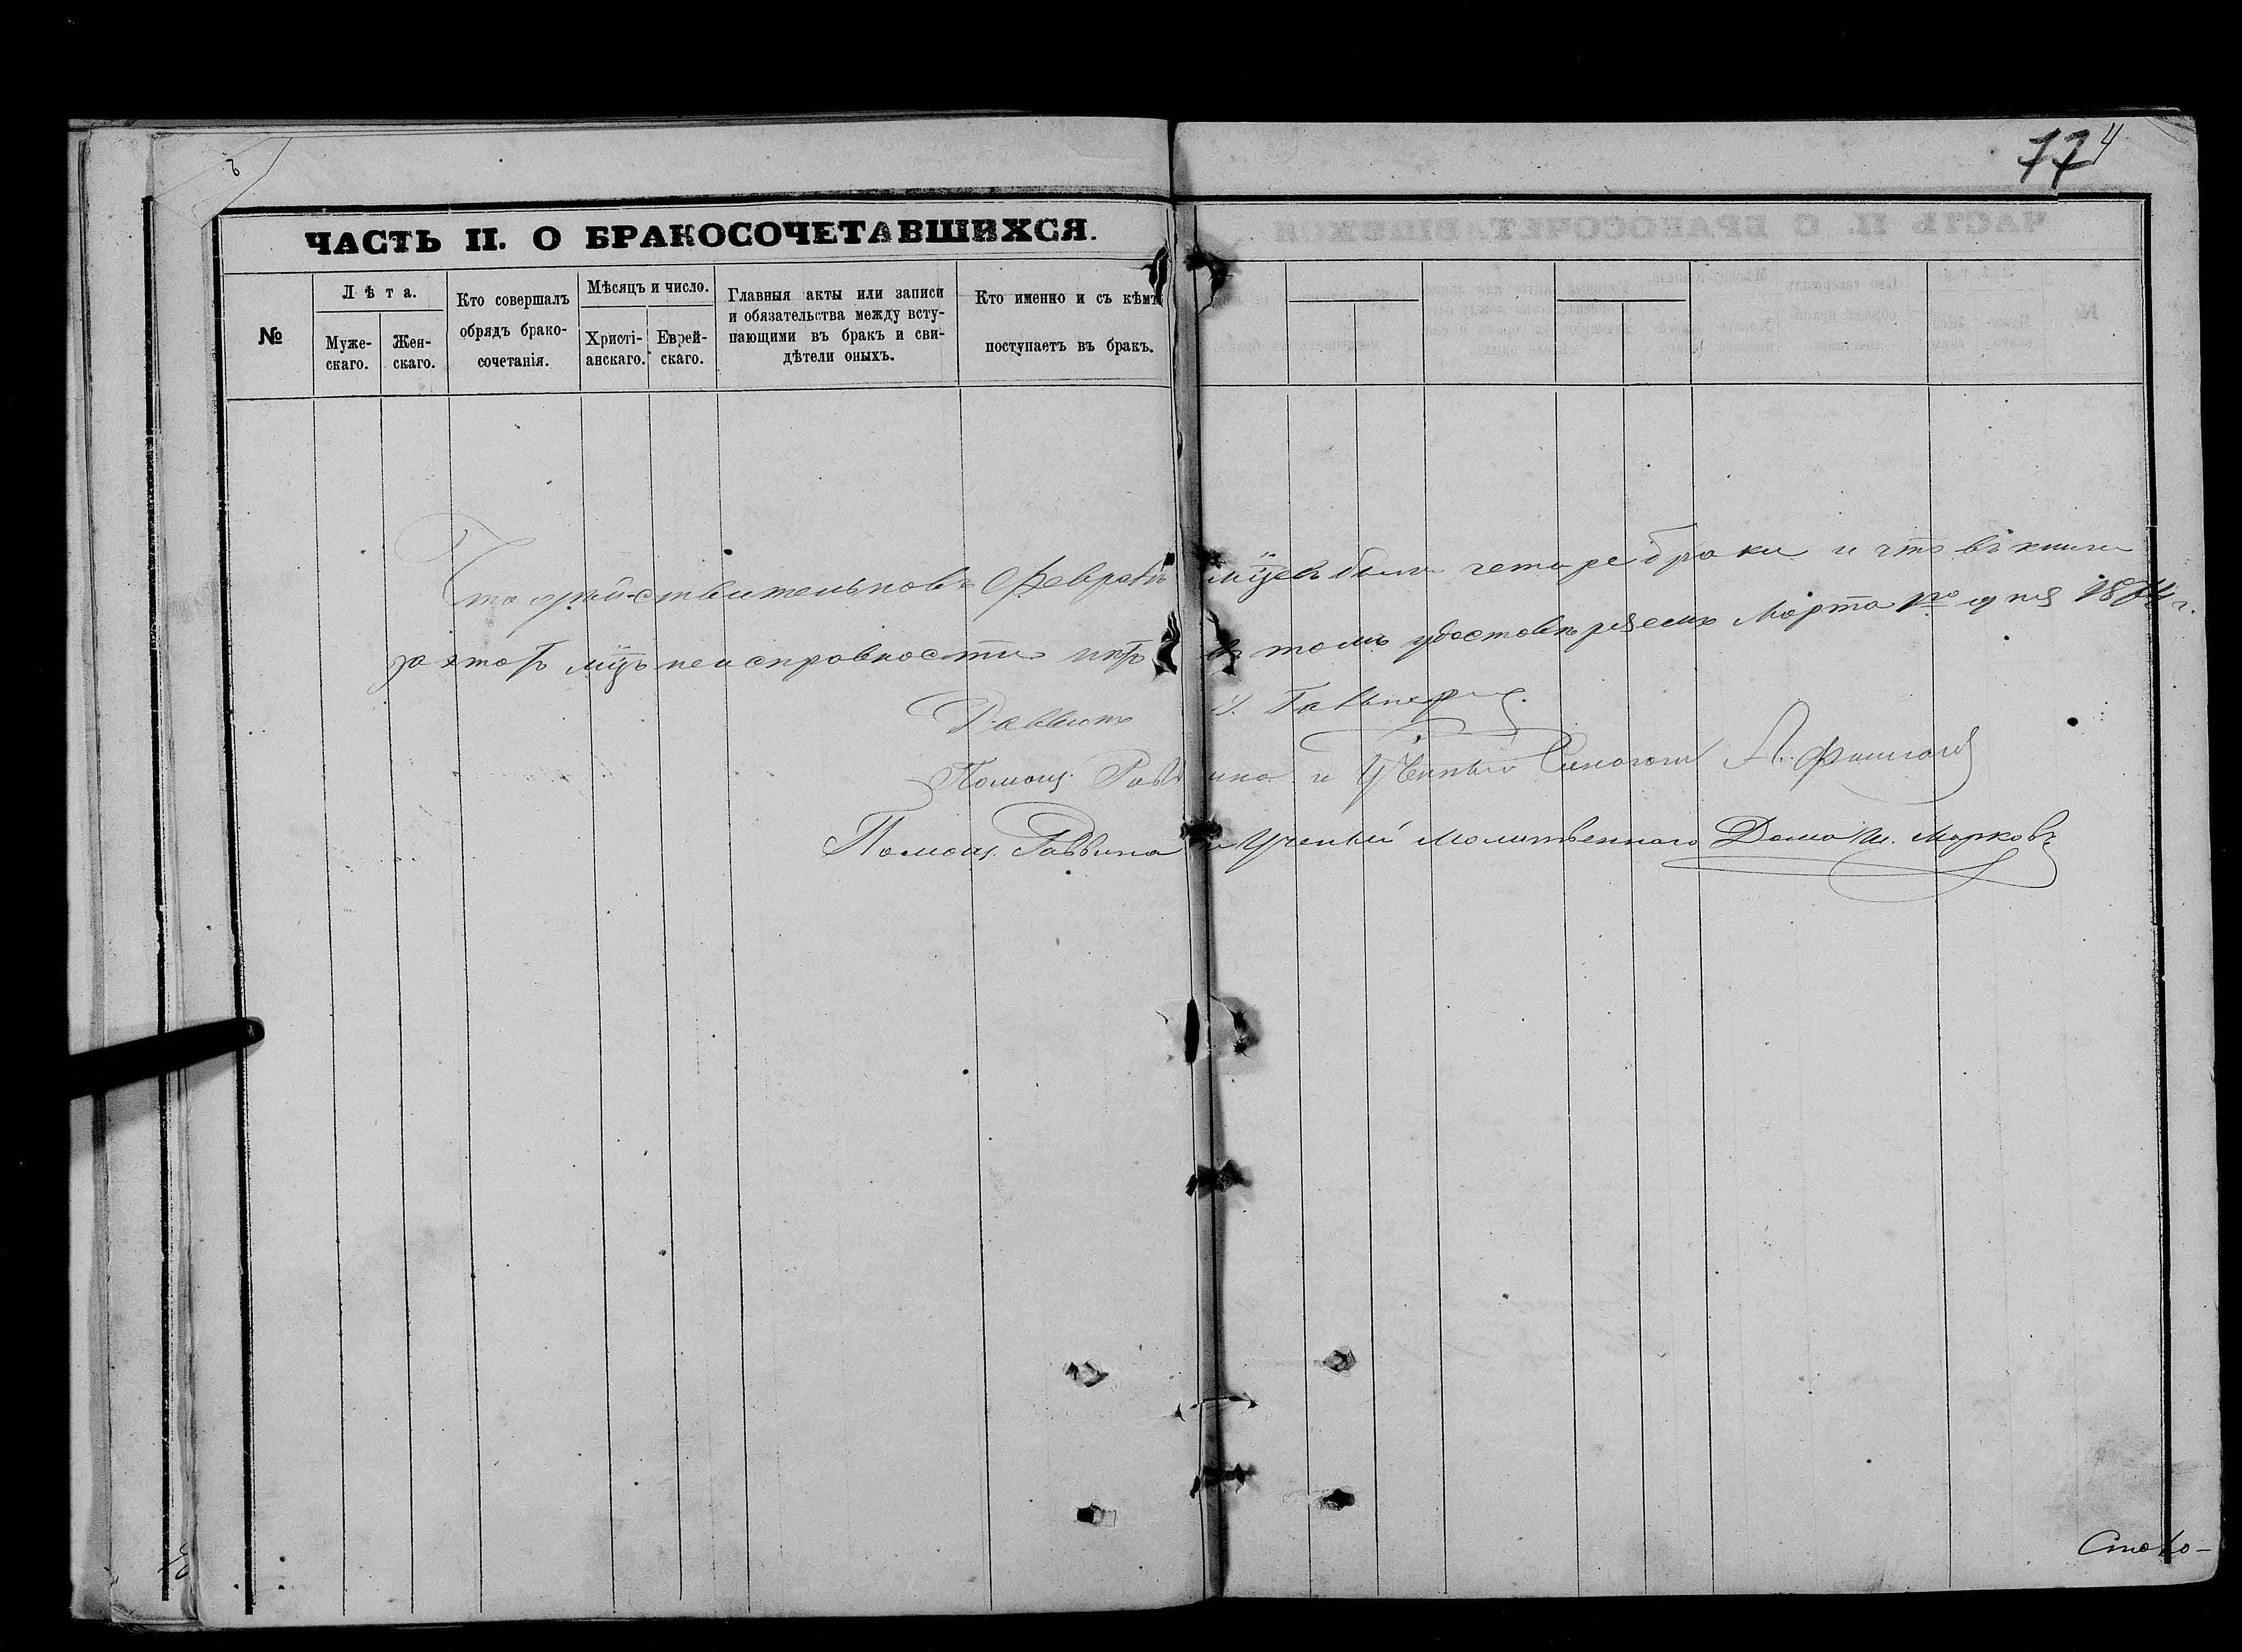 77 4
ЧАСТЬ II. О БРАКОСОЧЕТАВШИХСЯ.
№
Лѣта.
Муже-
скаго.
Жен-
скаго.
Кто совершалъ
обрядъ брако-
сочетанія.
Мѣсяцъ и число.
Христі-
анскаго.
Еврей-
скаго.
Главныя акты или записи
и обязательства между всту-
пающими въ бракъ и сви-
дѣтели оныхъ.
Кто именно и съ кѣмъ
поступаетъ въ бракъ.
Что дѣйствительно въ Февралѣ мѣцѣ были четыре браки и что въ книги
за этотъ мѣцъ неисправности нѣтъ въ томъ удостовѣряемъ Марта 1го дня 1874 г.
Раввинъ
Помощ. Раввина и Ученый Синагоги А.
Помощ. Раввина и Ученый Молитвенного Дома Ш. Марковъ